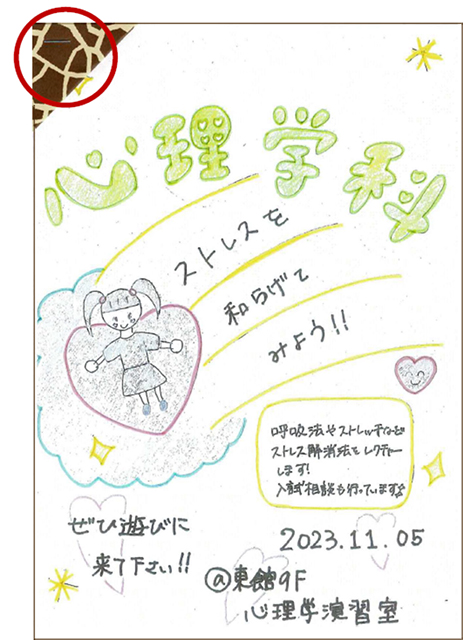 心理学科
ストレスを
和らげて
みよう!!
呼吸法やストレッチなど
ストレス解消法をレクチャー
します!
入試相談も行っています♪
ぜひ遊びに
来て下さい!!
2023.11.05
@東館9F
心理学演習室